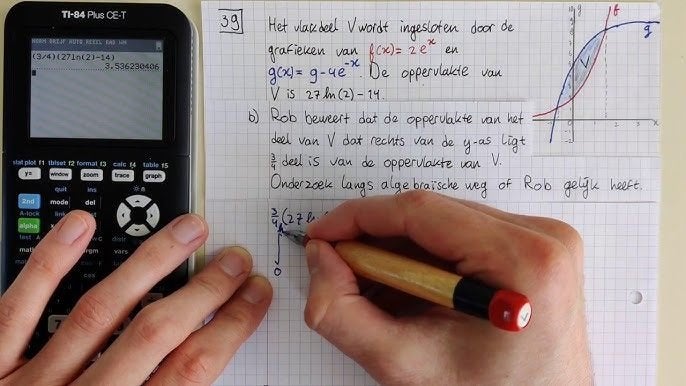 TI-84 Plus CE-T
NORM DRIJF AUTO REËEL RAD MN
(3/4)(27ln(2)-14)
3.536230406
stat plot f1 tblset f2 format f3 calc f4 table f5
y= window zoom trace graph
quit ins
2nd mode del
A-lock link list
alpha
39
Het vlakdeel V wordt ingesloten door de
grafieken van f(x)= 2e^x en
g(x)= 9-4e^-x. De oppervlakte van
V is 27ln(2)-14.
y f g
V
x
b) Rob beweert dat de oppervlakte van het
deel van V dat rechts van de y-as ligt
3/4 deel is van de oppervlakte van V.
Onderzoek langs algebraïsche weg of Rob gelijk heeft.
3/4 (27 ln
0